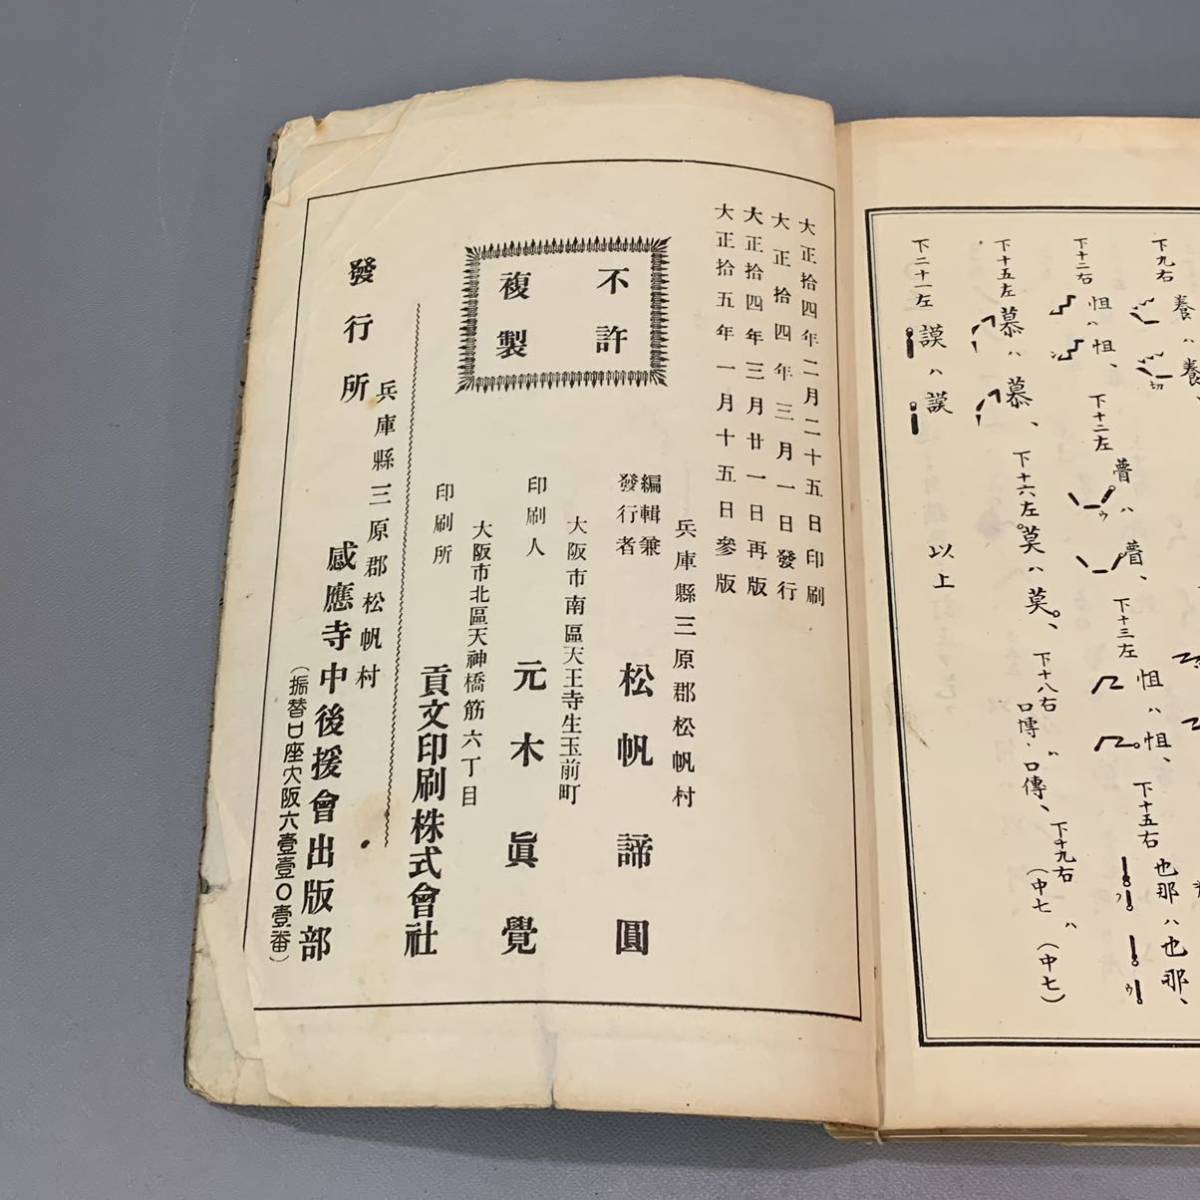 下九右
養ハ養
切
下十二右
怚ハ怚、
下十二左
普ハ普、
ウ
下十三左
怚ハ怚、
下十五右
也那ハ也那、
フ
ウ
下十五左
慕ハ慕、
下十六左
莫ハ莫、
下十八右
口傳・口傳、
下十九右
ハ
(中七
(中七)
下二十一左
謨ハ謨
以上
大正拾四年二月二十五日印刷
大正拾四年三月一日發行
大正拾四年三月廿一日再版
大正拾五年一月十五日參版
不許
複製
兵庫縣三原郡松帆村
編輯兼
發行者
松帆諦圓
大阪市南區天王寺生玉前町
印刷人
元木眞覺
大阪市北區天神橋筋六丁目
印刷所
貢文印刷株式會社
發行所
兵庫縣三原郡松帆村
感應寺中後援會出版部
(振替口座大阪六壹壹〇壹番)